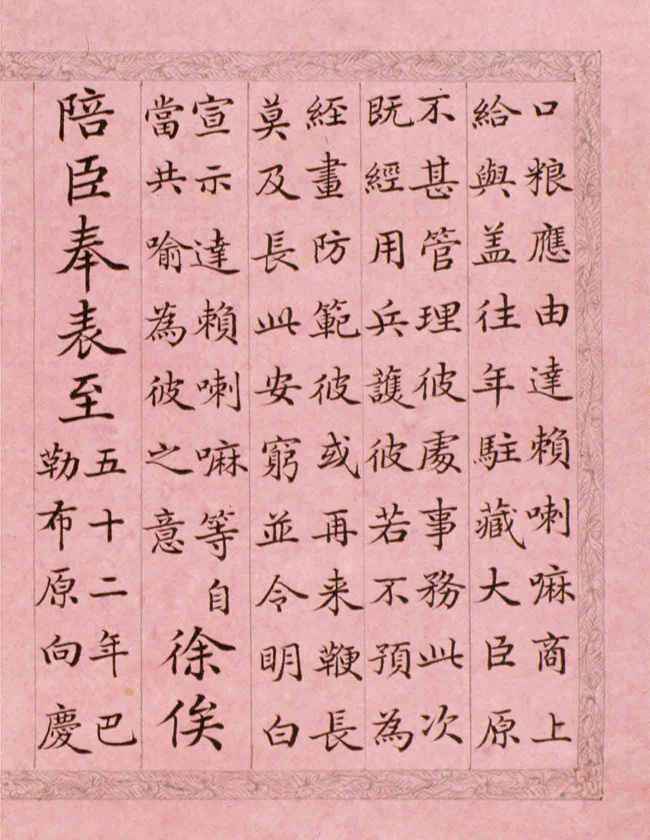 口粮應由達賴喇嘛商上
給與盖往年駐藏大臣原
不甚管理彼處事務此次
既經用兵護彼若不預為
經畫防範彼或再来鞭長
莫及長此安窮並令明白
宣示達賴喇嘛等自
當共喻為彼之意
徐俟
陪臣奉表至
五十二年巴
勒布原向慶